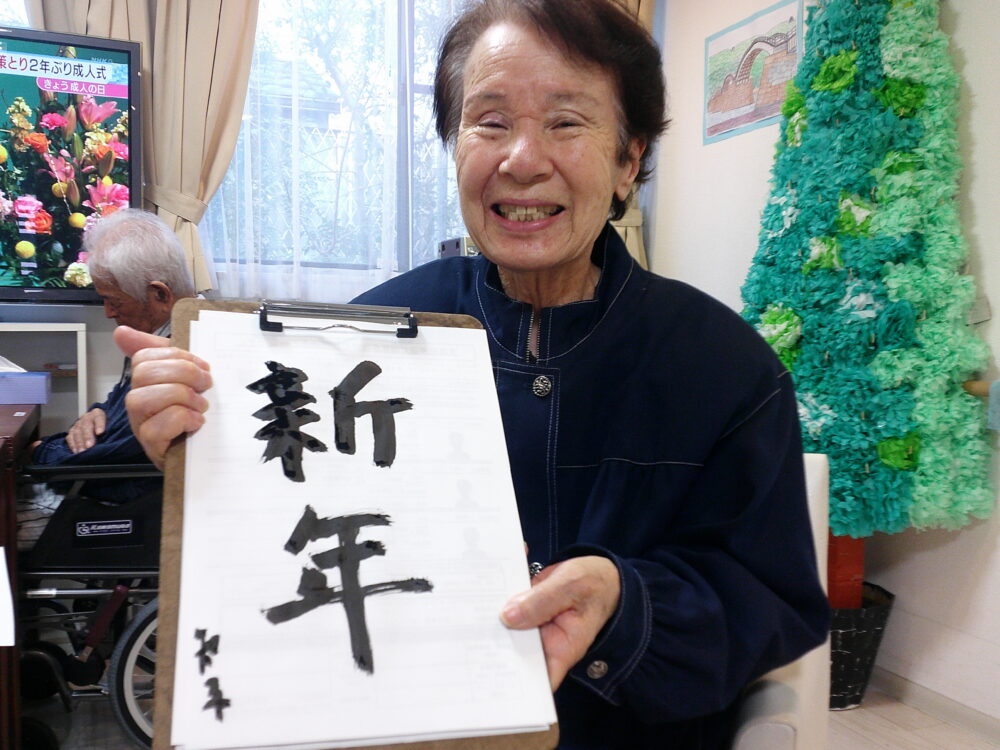 策とり2年ぶり成人式
きょう成人の日
NHK G
新年
Kawamura